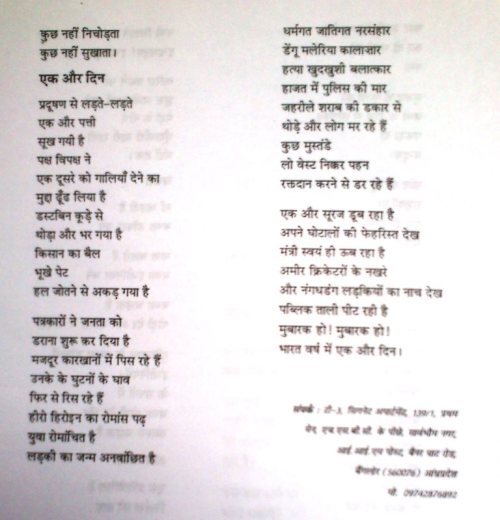 कुछ नहीं निचोड़ता
कुछ नहीं सुखाता।
एक और दिन
प्रदूषण से लड़ते-लड़ते
एक और पत्ती
सूख गयी है
पक्ष विपक्ष ने
एक दूसरे को गालियाँ देने का
मुद्दा ढूँढ लिया है
डस्टबिन कूड़े से
थोड़ा और भर गया है
किसान का बैल
भूखे पेट
हल जोतने से अकड़ गया है
पत्रकारों ने जनता को
डराना शुरू कर दिया है
मजदूर कारखानों में पिस रहे हैं
उनके के घुटनों के घाव
फिर से रिस रहे हैं
हीरो हिरोइन का रोमांस पढ़
युवा रोमांचित है
लड़की का जन्म अनवांछित है
धर्मगत जातिगत नरसंहार
डेंगू मलेरिया कालाजार
हत्या खुदखुशी बलात्कार
हाजत में पुलिस की मार
जहरीले शराब की डकार से
थोड़े और लोग मर रहे हैं
कुछ मुस्तंडे
लो वेस्ट निक्कर पहन
रक्तदान करने से डर रहे हैं
एक और सूरज डूब रहा है
अपने घोटालों की फेहरिस्त देख
मंत्री स्वयं ही ऊब रहा है
अमीर क्रिकेटरों के नखरे
और नंगधडंग लड़कियों का नाच देख
पब्लिक ताली पीट रही है
मुबारक हो! मुबारक हो!
भारत वर्ष में एक और दिन।
संपर्क : टी-3, सिगनेट अपार्टमेंट, 139/1, प्रथम
मेन, एच.एस.बी.सी. के पीछे, सार्वभौम नगर,
आई.आई.एम पोस्ट, बैनर घाट रोड,
बैंगलोर (560076) आंध्रप्रदेश
मो. 09742876892